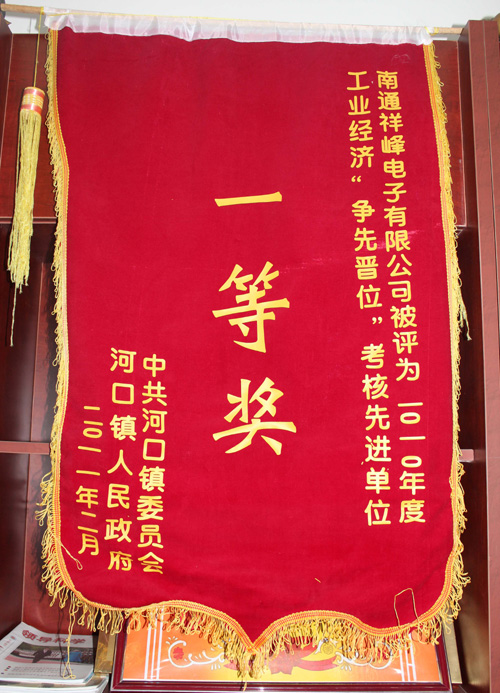 南通祥峰电子有限公司被评为二0一0年度
工业经济“争先晋位”考核先进单位
一等奖
中共河口镇委员会
河口镇人民政府
二0一一年二月
领导科学